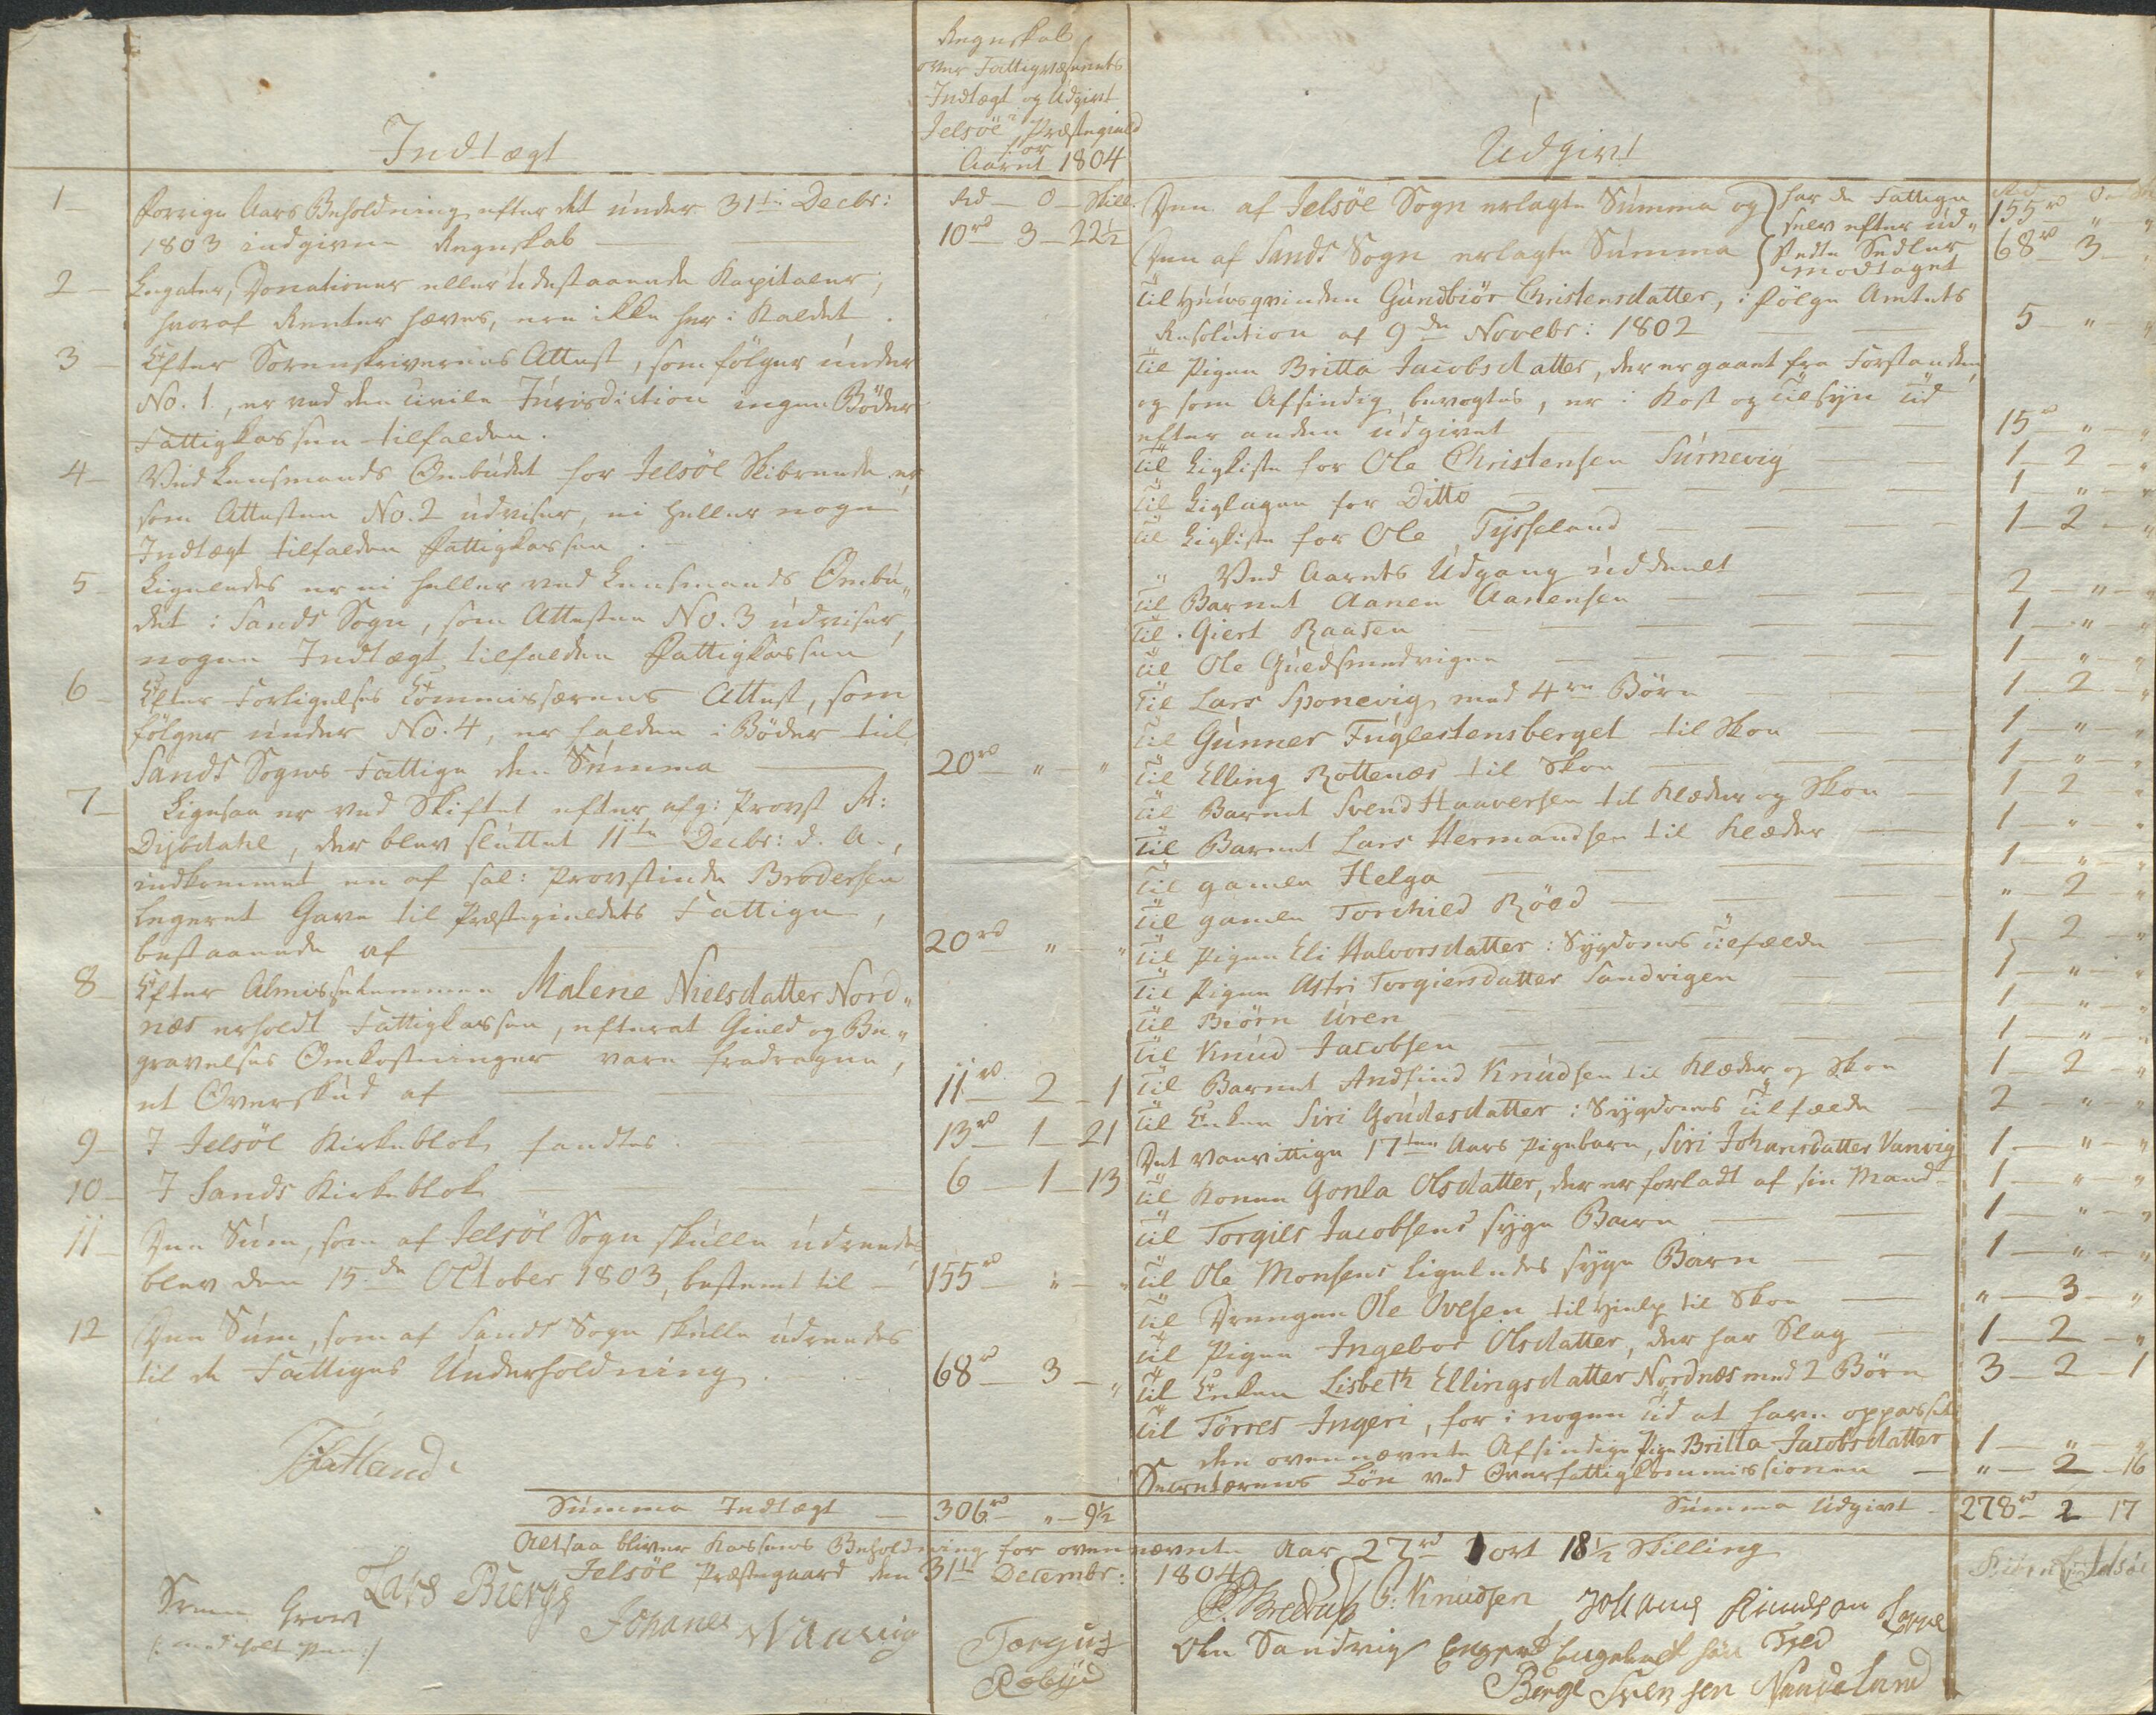 Regnskab
over Fattigvæsenets
Indtægt og Udgivt
i Jelsöe Præstegield
for
Aaret 1804
Indtægt
Rd - O - Skill.
1 - forrige Aars Beholdning efter det under 31te Decbr:
1803 indgivne Regnskab - 10rd - 3 - 22½
2 - Legater, Donationer eller Udestaaende Kapitaler,
hvoraf Renter hæves, ere ikke her i Kaldet.
3 - Efter Sorenskriverens Attest, som fölger under
No. 1., er ved den civile Jurisdiction ingen Böder
Fattigkassen tilfalden.
4 - Ved Lensmands Ombudet for Jelsöe Skibrede er,
som Attesten No. 2 udviser, ei heller nogen
Indtægt tilfalden fattigkassen.
5 - Ligeledes er ei heller ved Lensmands Ombu„
det i Sands Sogn, som Attesten No. 3 udviser,
nogen Indtægt tilfalden fattigkassen
6 - Efter Forligelses Commissærens Attest, som
fölger under No. 4, er falden i Böder til
Sands Sogns Fattige den Summa - 20rd - „ - „
7 - Ligesaa er ved Skiftet efter afg: Provst A:
Dijbdahl, der blev sluttet 11te Decbr: d. A.,
indkommet en af sal: Provstinde Brodersen
legeret Gave til Præstegieldets Fattige,
bestaaende af - 20rd „ - „
8 - Efter Almisselemmen Malene Nielsdatter Nord„
næs erholdt Fattigkassen, efterat Gield og Be„
gravelses Omkostninger vare fradragne,
et Overskud af - 11rd - 2 - 1
9 - I Jelsöe Kirkeblok fandtes - 13rd - 1 - 21
10 - I Sands Kirkeblok - 6 - 1 - 13
11 - Den Sum, som af Jelsöe Sogn skulle udredes,
blev den 15de October 1803, bestemt til - 155rd - „ - „
12 - Den Sum, som af Sands Sogn skulle udredes
til de Fattiges Underholdning - 68rd - 3 - „
Summa Indtægt - 306rd - „ - 9½
Udgivt
Den af Jelsöe Sogn erlagte Summa og } har de Fattige - 155rd „ - „
selv efter ud„
Den af Sands Sogn erlagte Summa } stedte Sedler - 68rd - 3 - „
modtaget
Til Huusqvinden Gundbiör Christensdatter, i fölge Amtets
Resolution af 9de Novebr: 1802 - 5 - „ - „
Til Pigen Britta Jacobsdatter, der er gaaet fra Forstanden,
og som Afsindig bevogtes, er i Kost og Tilsyn Tid
efter anden udgivet - 15rd - „ - „
Til Ligkiste for Ole Christensen Surnevig - 1 - 2 - „
Til Liglagen for Ditto - 1 - „ - „
Til Ligkiste for Ole Tysseland - 1 - 2 - „
„ Ved Aarets Udgang uddeelt
Til Barnet Aanen Aanensen - 2 - „ - „
Til Giert Raaden - 1 - „ - „
Til Ole Guedsmedvigen - 1 - „ - „
Til Lars Sponevig med 4re Börn - 1 - 2 - „
Til Gunner Fuglestensberget til Skoe - 1 - „ - „
Til Elling Rottenæs til Skoe - 1 - „ - „
Til Barnet Svend Haaversen til Klæder og Skoe - 1 - 2 - „
Til Barnet Lars Hermandsen til Klæder - 1 - „ - „
Til gamle Helga - 1 - „ - „
Til gamle Torchield Röed - „ - 2 - „
Til Pigen Eli Halvorsdatter i Sygdoms Tilfælde - 1 - 2 - „
Til Pigen Astri Torgiersdatter Sandvigen - 1 - „ - „
Til Biörn Uren - 1 - „ - „
Til Knud Jacobsen - 1 - „ - „
Til Barnet Andfind Knudsen til Klæder og Skoe - 1 - 2 - „
Til Enken Siri Goudesdatter i Sygdoms Tilfælde - 2 - „ - „
Det vanvittige 17ten Aars Pigebarn, Siri Johansdatter Vanvig - 1 - „ - „
Til Konen Gonla Olsdatter, der er forladt af sin Mand - 1 - „ - „
Til Torgils Jacobsens syge Barn - 1 - „ - „
Til Ole Monsens ligeledes syge Barn - 1 - „ - „
Til Drengen Ole Ovesen til Hielp til Skoe - „ - 3 - „
Til Pigen Ingebor Olsdatter, der har Slag - 1 - 2 - „
Til Enken Lisbeth Ellingsdatter Nordnæs med 2 Börn - 3 - 2 - 1
Til Törres Ingeri, for i nogen Tid at have oppasset
den ovennævnte Afsindige Pige Britta Jacobsdatter - 1 - „ - „
Secretærens Lön ved Overfattigkommissionen - „ - 2 - 16
Summa Udgivt - 278rd - 2 - 17
Altsaa bliver Kassens Beholdning for ovennævnte Aar 27rd 1 ort 18½ Skilling
Jelsöe Præstegaard den 31te Decembr: 1804
Lars Bierge
Johanes Waavig
G: Knudsen
Johans Knudson
Ole Sandvig
Berge Svensen Nandeland